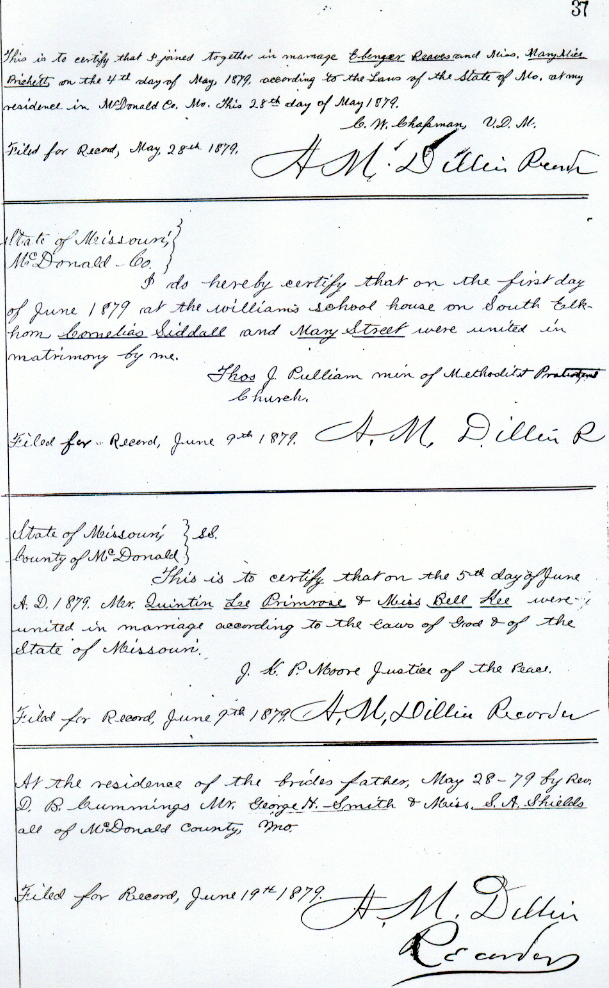 37
This is to certify that I joined together in marriage Ebenezer Reaves and Miss. Mary Alice
Prichett, on the 4th day of May, 1879, according to the Laws of the State of Mo. at my
residence in McDonald Co. Mo. This 28th day of May 1879.
C. W. Chapman, V.D.M.
Filed for Record, May 28th 1879. A M. Dillin Recorder
State of Missouri,
McDonald Co.
I do hereby certify that on the first day
of June 1879 at the williams school house on South Elk-
horn Cornelias Siddall and Mary Street were united in
matrimony by me.
Thos J. Pulliam min of Methodist
Church.
Filed for Record, June 9th 1879. A. M. Dillin R
State of Missouri, } ss.
County of McDonald }
This is to certify that on the 5th day of June
A.D. 1879. Mr. Quintin Lee Primrose & Miss Bell Kee were
united in marriage according to the Laws of God & of the
State of Missouri.
J. K. P. Moore Justice of the Peace.
Filed for Record, June 9th 1879. A. M. Dillin Recorder
At the residence of the brides father, May 28-79 by Rev.
D. B. Cummings Mr. George H. Smith & Miss. S. A. Shields
all of McDonald County, Mo.
Filed for Record, June 19th 1879. A. M. Dillin
Recorder